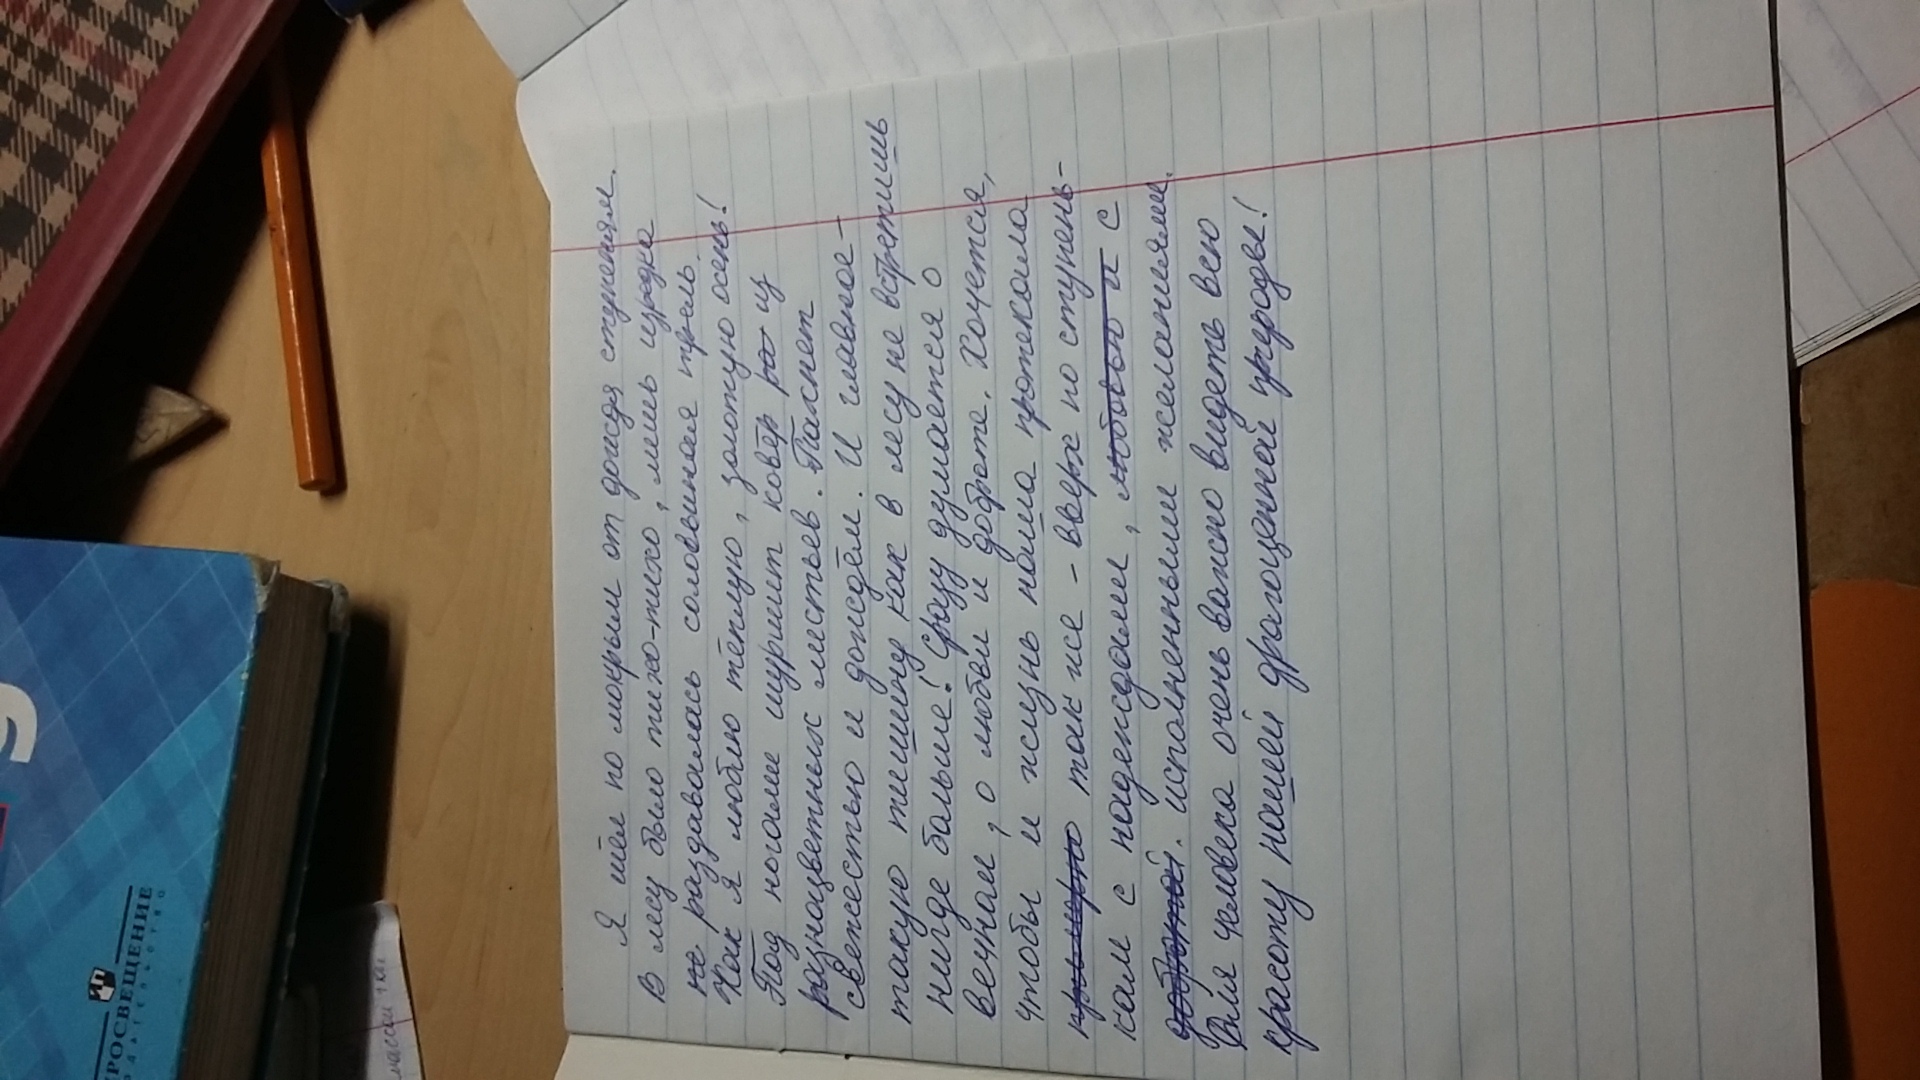 Я шёл по мокрым от дождя ступеням.
В лесу было тихо-тихо, лишь изредка
не раздавалась соловьиная трель.
Как я люблю тёплую, золотую осень!
Под ногами шуршит ковёр ра из
разноцветных листьев. Пахнет
свежестью и дождём. И главное –
такую тишину как в лесу не встретишь
нигде больше! Сразу думается о
вечном, о любви и доброте. Хочется,
чтобы и жизнь наша протекала
примерно так же – вверх по ступень-
кам с надеждами, любовью и с
добротой. исполненными желаниями.
Для человека очень важно видеть всю
красоту нашей драгоценной природы!
ПРОСВЕЩЕНИЕ
ИЗДАТЕЛЬСТВО